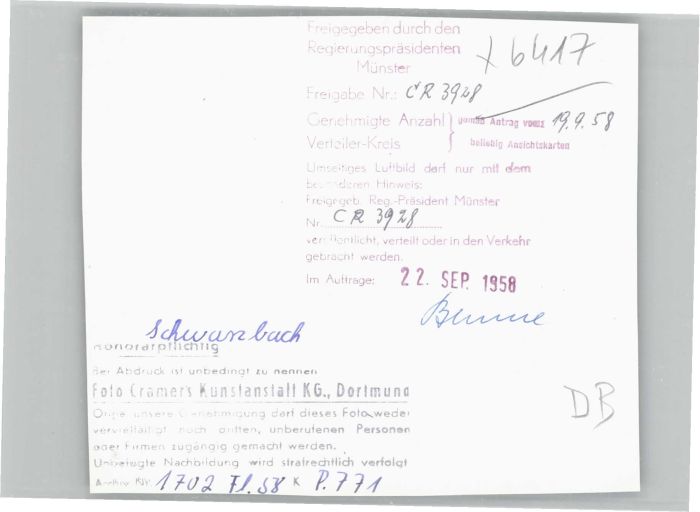 Freigegeben durch den
Regierungspräsidenten
Münster
6417
Freigabe Nr.: CR 3928
Genehmigte Anzahl } gemäß Antrag vom: 19.9.58
Verteiler-Kreis beliebig Ansichtskarten
Umseitiges Luftbild darf nur mit dem
besonderen Hinweis:
Freigegeb. Reg.-Präsident Münster
Nr. CR 3928
veröffentlicht, verteilt oder in den Verkehr
gebracht werden.
Im Auftrage: 22. SEP. 1958
Schwarzbach
Honorarpflichtig
Bei Abdruck ist unbedingt zu nennen
Foto Cramers Kunstanstalt KG., Dortmund
Ohne unsere Genehmigung darf dieses Foto weder
vervielfältigt noch dritten, unberufenen Personen
oder Firmen zugängig gemacht werden.
Unbefugte Nachbildung wird strafrechtlich verfolgt
Archiv Nr. 1702 Fl. 58 K P. 771
DB